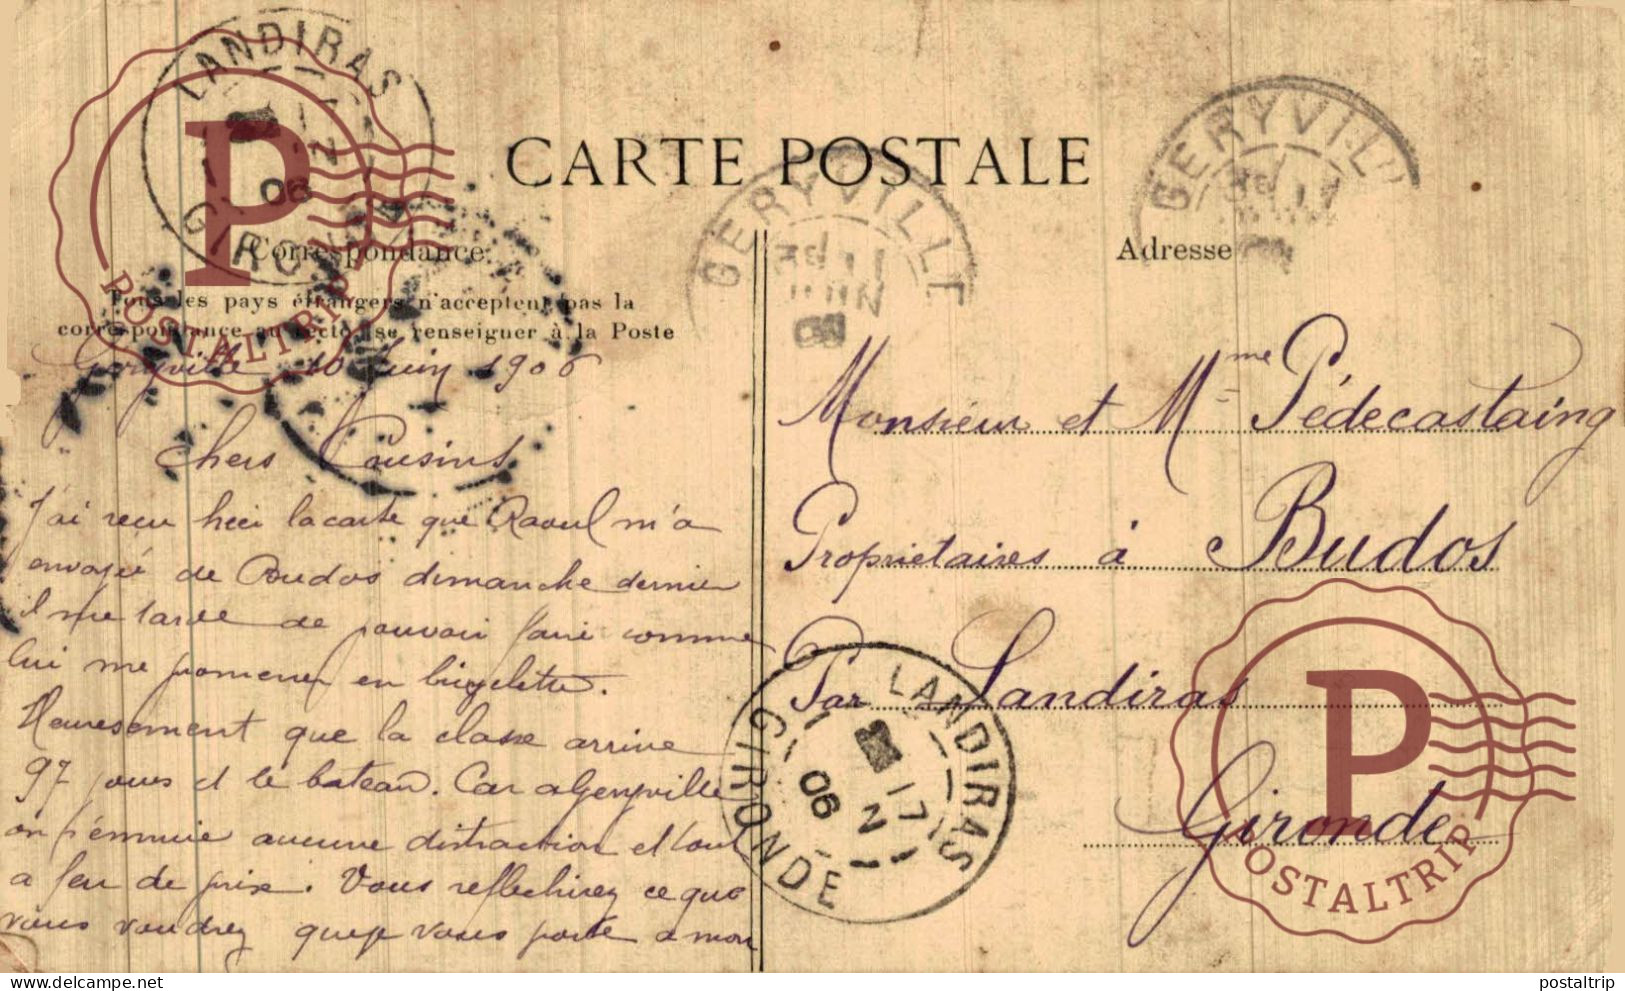 CARTE POSTALE
Correspondance
Adresse
Tous les pays étrangers n'acceptent pas la
correspondance au recto (se renseigner à la Poste
Géryville 10 Juin 1906
Chers Cousins
J'ai reçu hier la carte que Raoul m'a
envoyée de Budos dimanche dernier
il me tarde de pouvoir faire comme
lui me promener en bicyclette.
Heuresement que la classe arrive
97 jours et le bateau. Car a Geryville
on s'ennuie aucune distraction et tout
a feu de prix. Vous reflechirez ce que
vous voudrez que je vous porte a mon
Monsieur et Mme Pédecastaing
Propriétaires à Budos
Par Landiras
Gironde
LANDIRAS
06
GIRONDE
GERYVILLE
GERYVILLE
LANDIRAS
17
06
GIRONDE
P
POSTALTRIP
P
POSTALTRIP
postaltrip